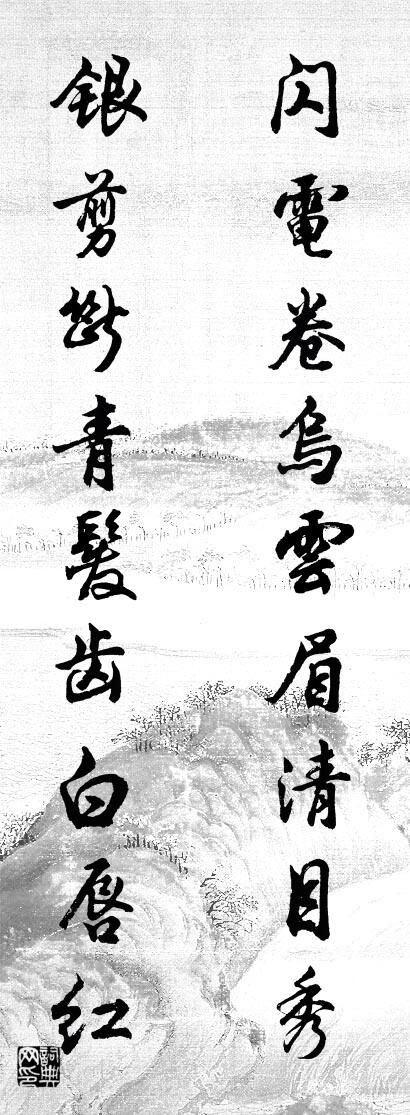 闪電卷烏雲眉清目秀
銀剪斷青髮齿白唇红
詞典网印